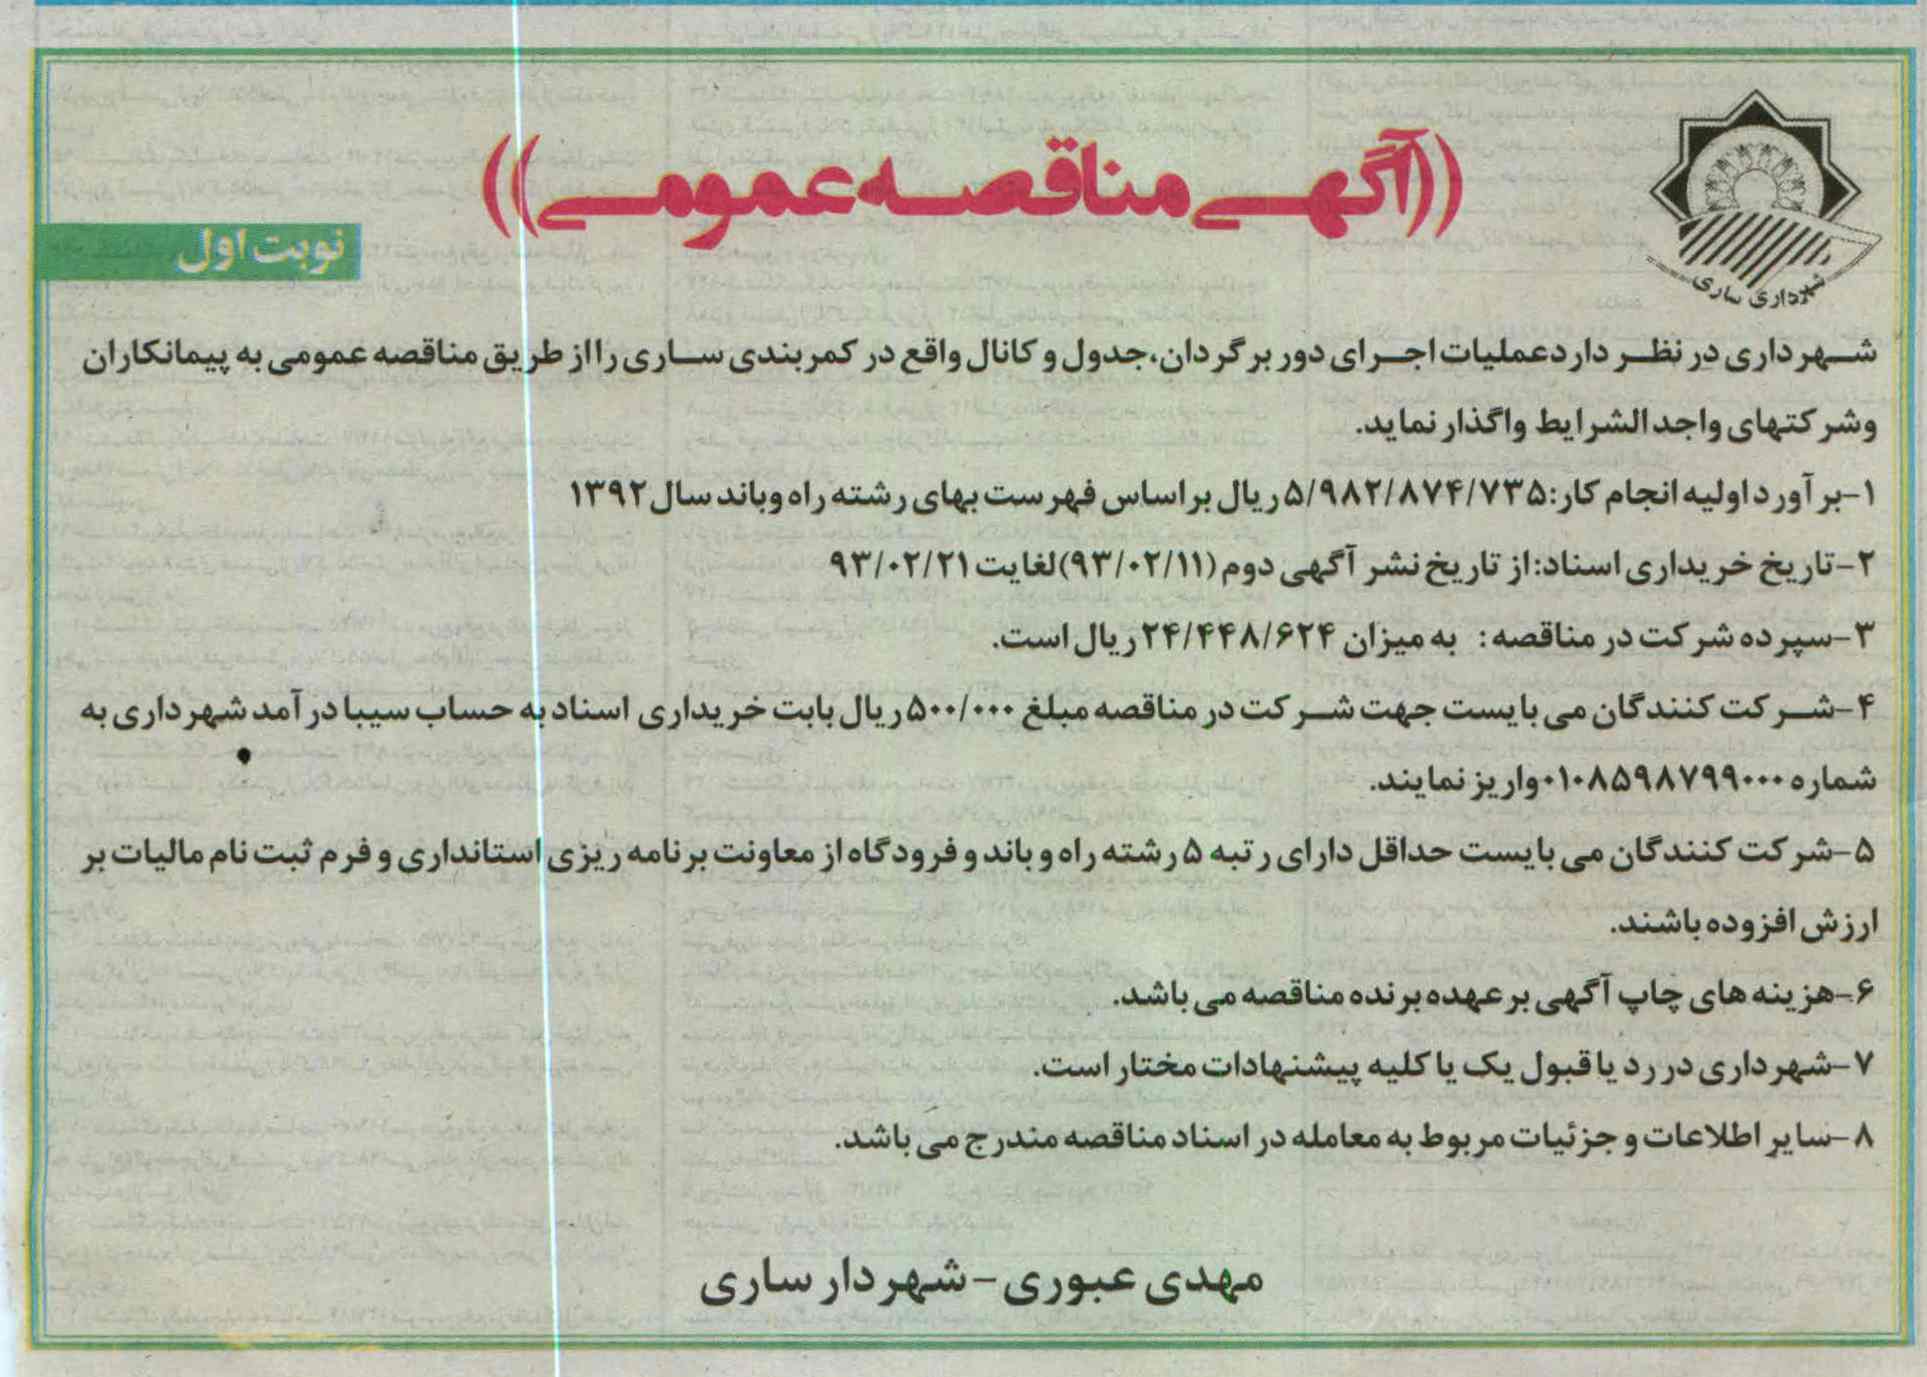 شهرداری ساری
((آگهی مناقصه عمومی))
نوبت اول
شهرداری در نظر دارد عملیات اجرای دور برگردان،جدول و کانال واقع در کمربندی ساری را از طریق مناقصه عمومی به پیمانکاران
وشرکتهای واجد الشرایط واگذار نماید.
۱-برآورد اولیه انجام کار:۵/۹۸۲/۸۷۴/۷۳۵ ریال براساس فهرست بهای رشته راه وباند سال ۱۳۹۲
۲-تاریخ خریداری اسناد:از تاریخ نشر آگهی دوم (۹۳/۰۲/۱۱)لغایت ۹۳/۰۲/۲۱
۳-سپرده شرکت در مناقصه: به میزان ۲۴/۴۴۸/۶۲۴ ریال است.
۴-شرکت کنندگان می بایست جهت شرکت در مناقصه مبلغ ۵۰۰/۰۰۰ ریال بابت خریداری اسناد به حساب سیبا درآمد شهرداری به
شماره ۰۱۰۸۵۹۸۷۹۹۰۰۰ واریز نمایند.
۵-شرکت کنندگان می بایست حداقل دارای رتبه ۵ رشته راه و باند و فرودگاه از معاونت برنامه ریزی استانداری و فرم ثبت نام مالیات بر
ارزش افزوده باشند.
۶-هزینه های چاپ آگهی بر عهده برنده مناقصه می باشد.
۷-شهرداری در رد یا قبول یک یا کلیه پیشنهادات مختار است.
۸-سایر اطلاعات و جزئیات مربوط به معامله در اسناد مناقصه مندرج می باشد.
مهدی عبوری - شهردار ساری